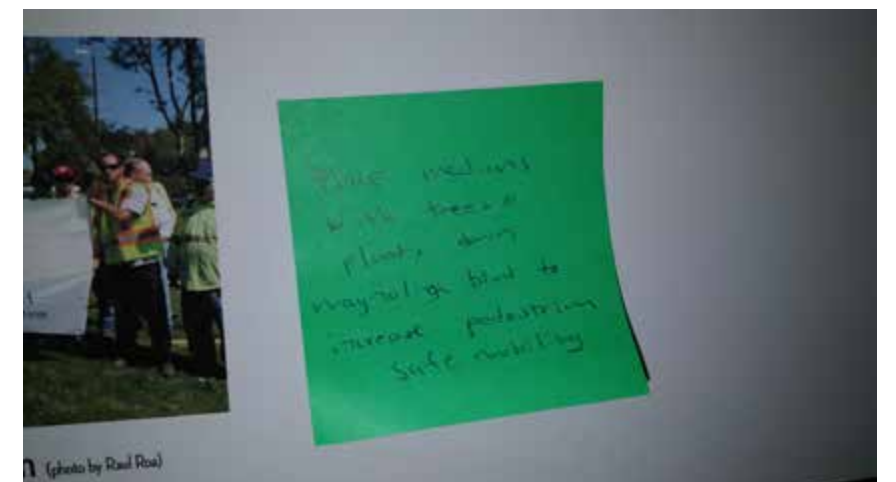 Place medians
with trees &
plants along
magnolia blvd to
increase pedestrian
safe mobility
(photo by Raul Roa)